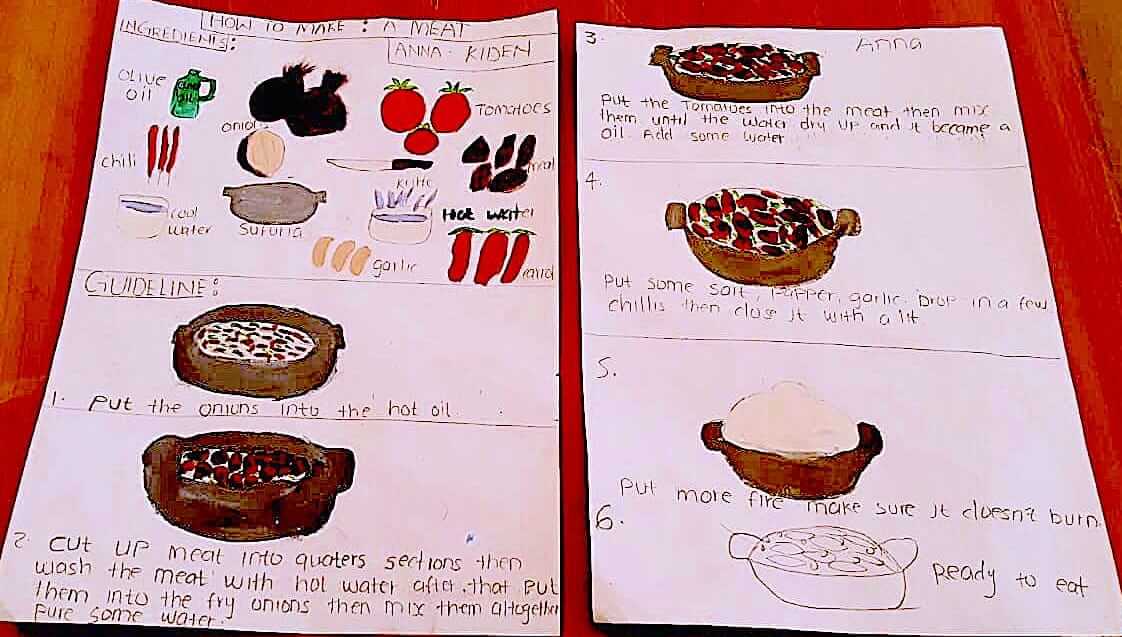 HOW TO MAKE : A MEAT
INGREDIENTS:
ANNA. KIDEN
OLIVE
OIL
TOMATOES
onion
chilli
knife
meat
cool
water
Sufuria
Hot water
garlic
GUIDELINE:
1. Put the onions into the hot oil.
2. Cut up meat into quaters sections then
wash the meat with hot water after. that put
them into the fry onions then mix them altogether
Pure some water.
3. Anna
Put the Tomatoes into the meat then mix
them until the water dry up and it became a
oil. Add some water
4.
Put some salt, pepper, garlic. Drop in a few
chillis then close it with a lit
5.
Put more fire make sure it doesn't burn.
6.
Ready to eat